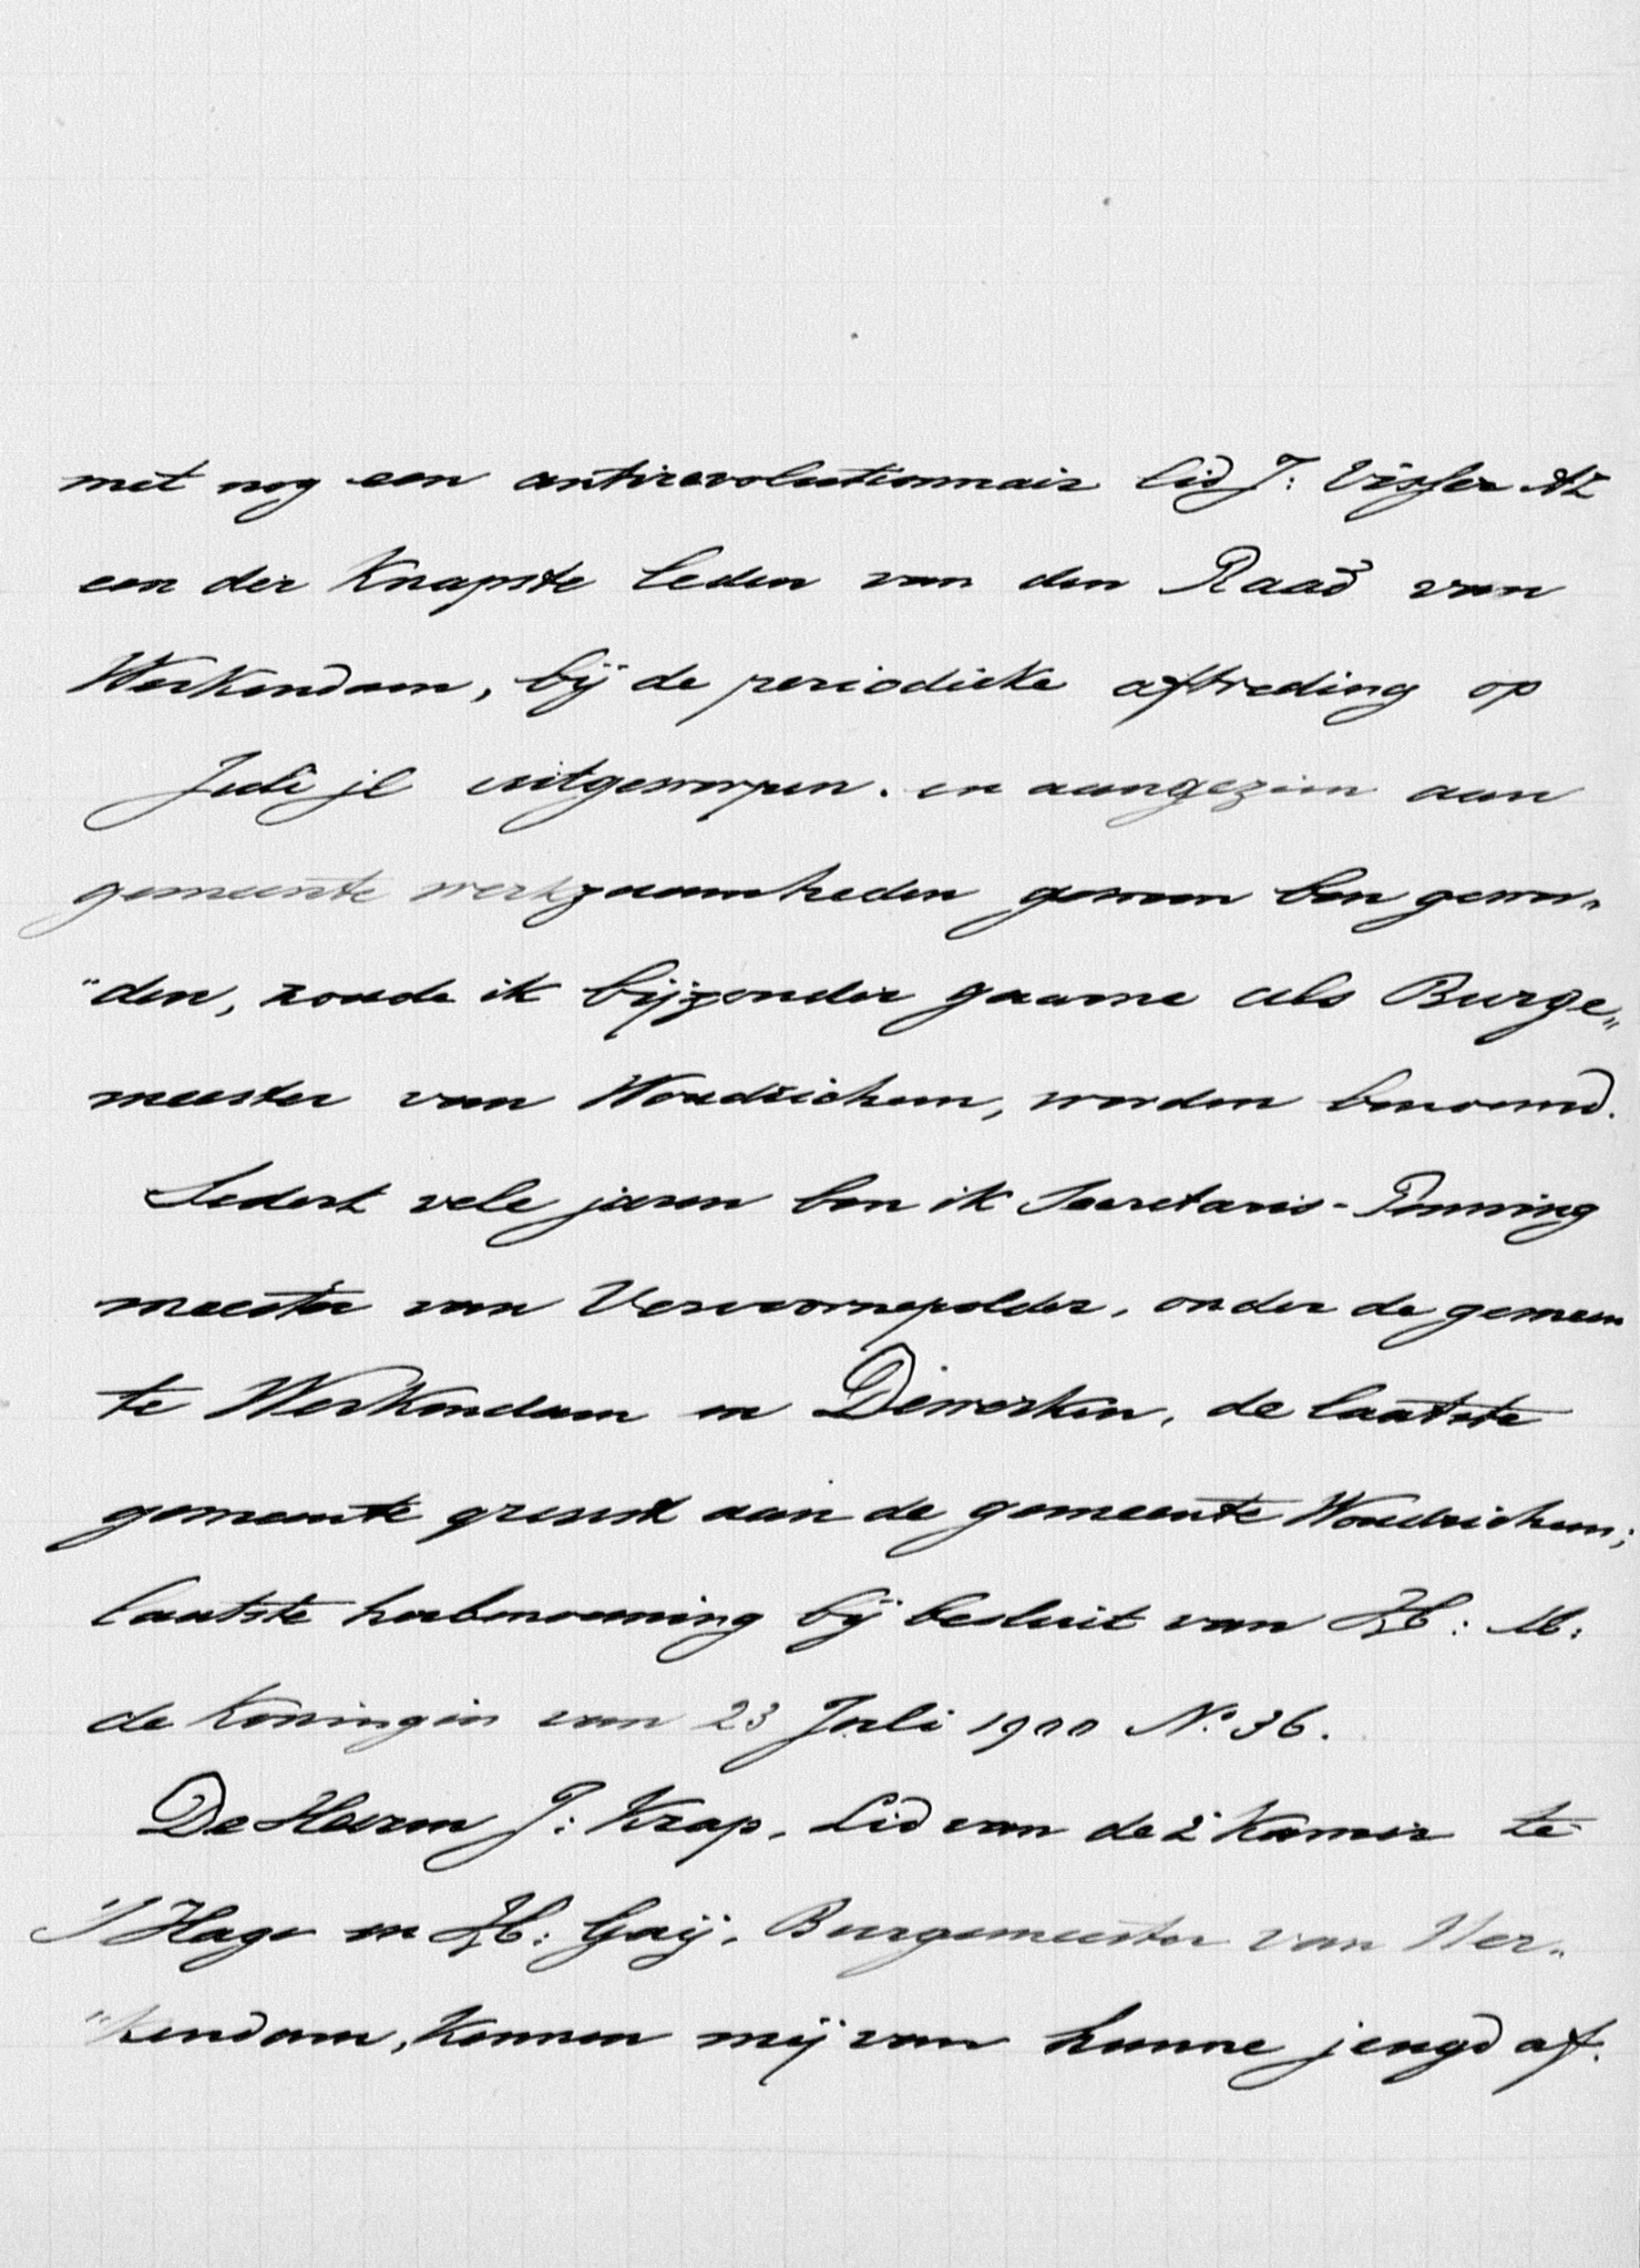 met nog een antirevolutionnair lid J: Visser AZ
een der Knapste leden van den Raad van
Werkendam, bij de periodieke aftreding op
Juli jl uitgeworpen. en aangezien aan
gemeente werkzaamheden gewoon ben gewor„
"den, zoude ik bijzonder gaarne als Burge„
meester van Woudrichem, worden benoemd.
Sedert vele jaren ben ik Secretaris-Penning
meester van Vervoornepolder, onder de gemeen
te Werkendam en Dewerken, de laatste
gemeente grenst aan de gemeente Woudrichem;
laatste herbenoeming bij besluit van H: M:
de Koningin van 23 Juli 1900 No. 36.
De Heeren J: Krap, Lid van de 2e Kamer te
'S Hage en H: Gaij, Burgemeester van Wer„
"kendam, Kennen mij van hunne jeugd af.